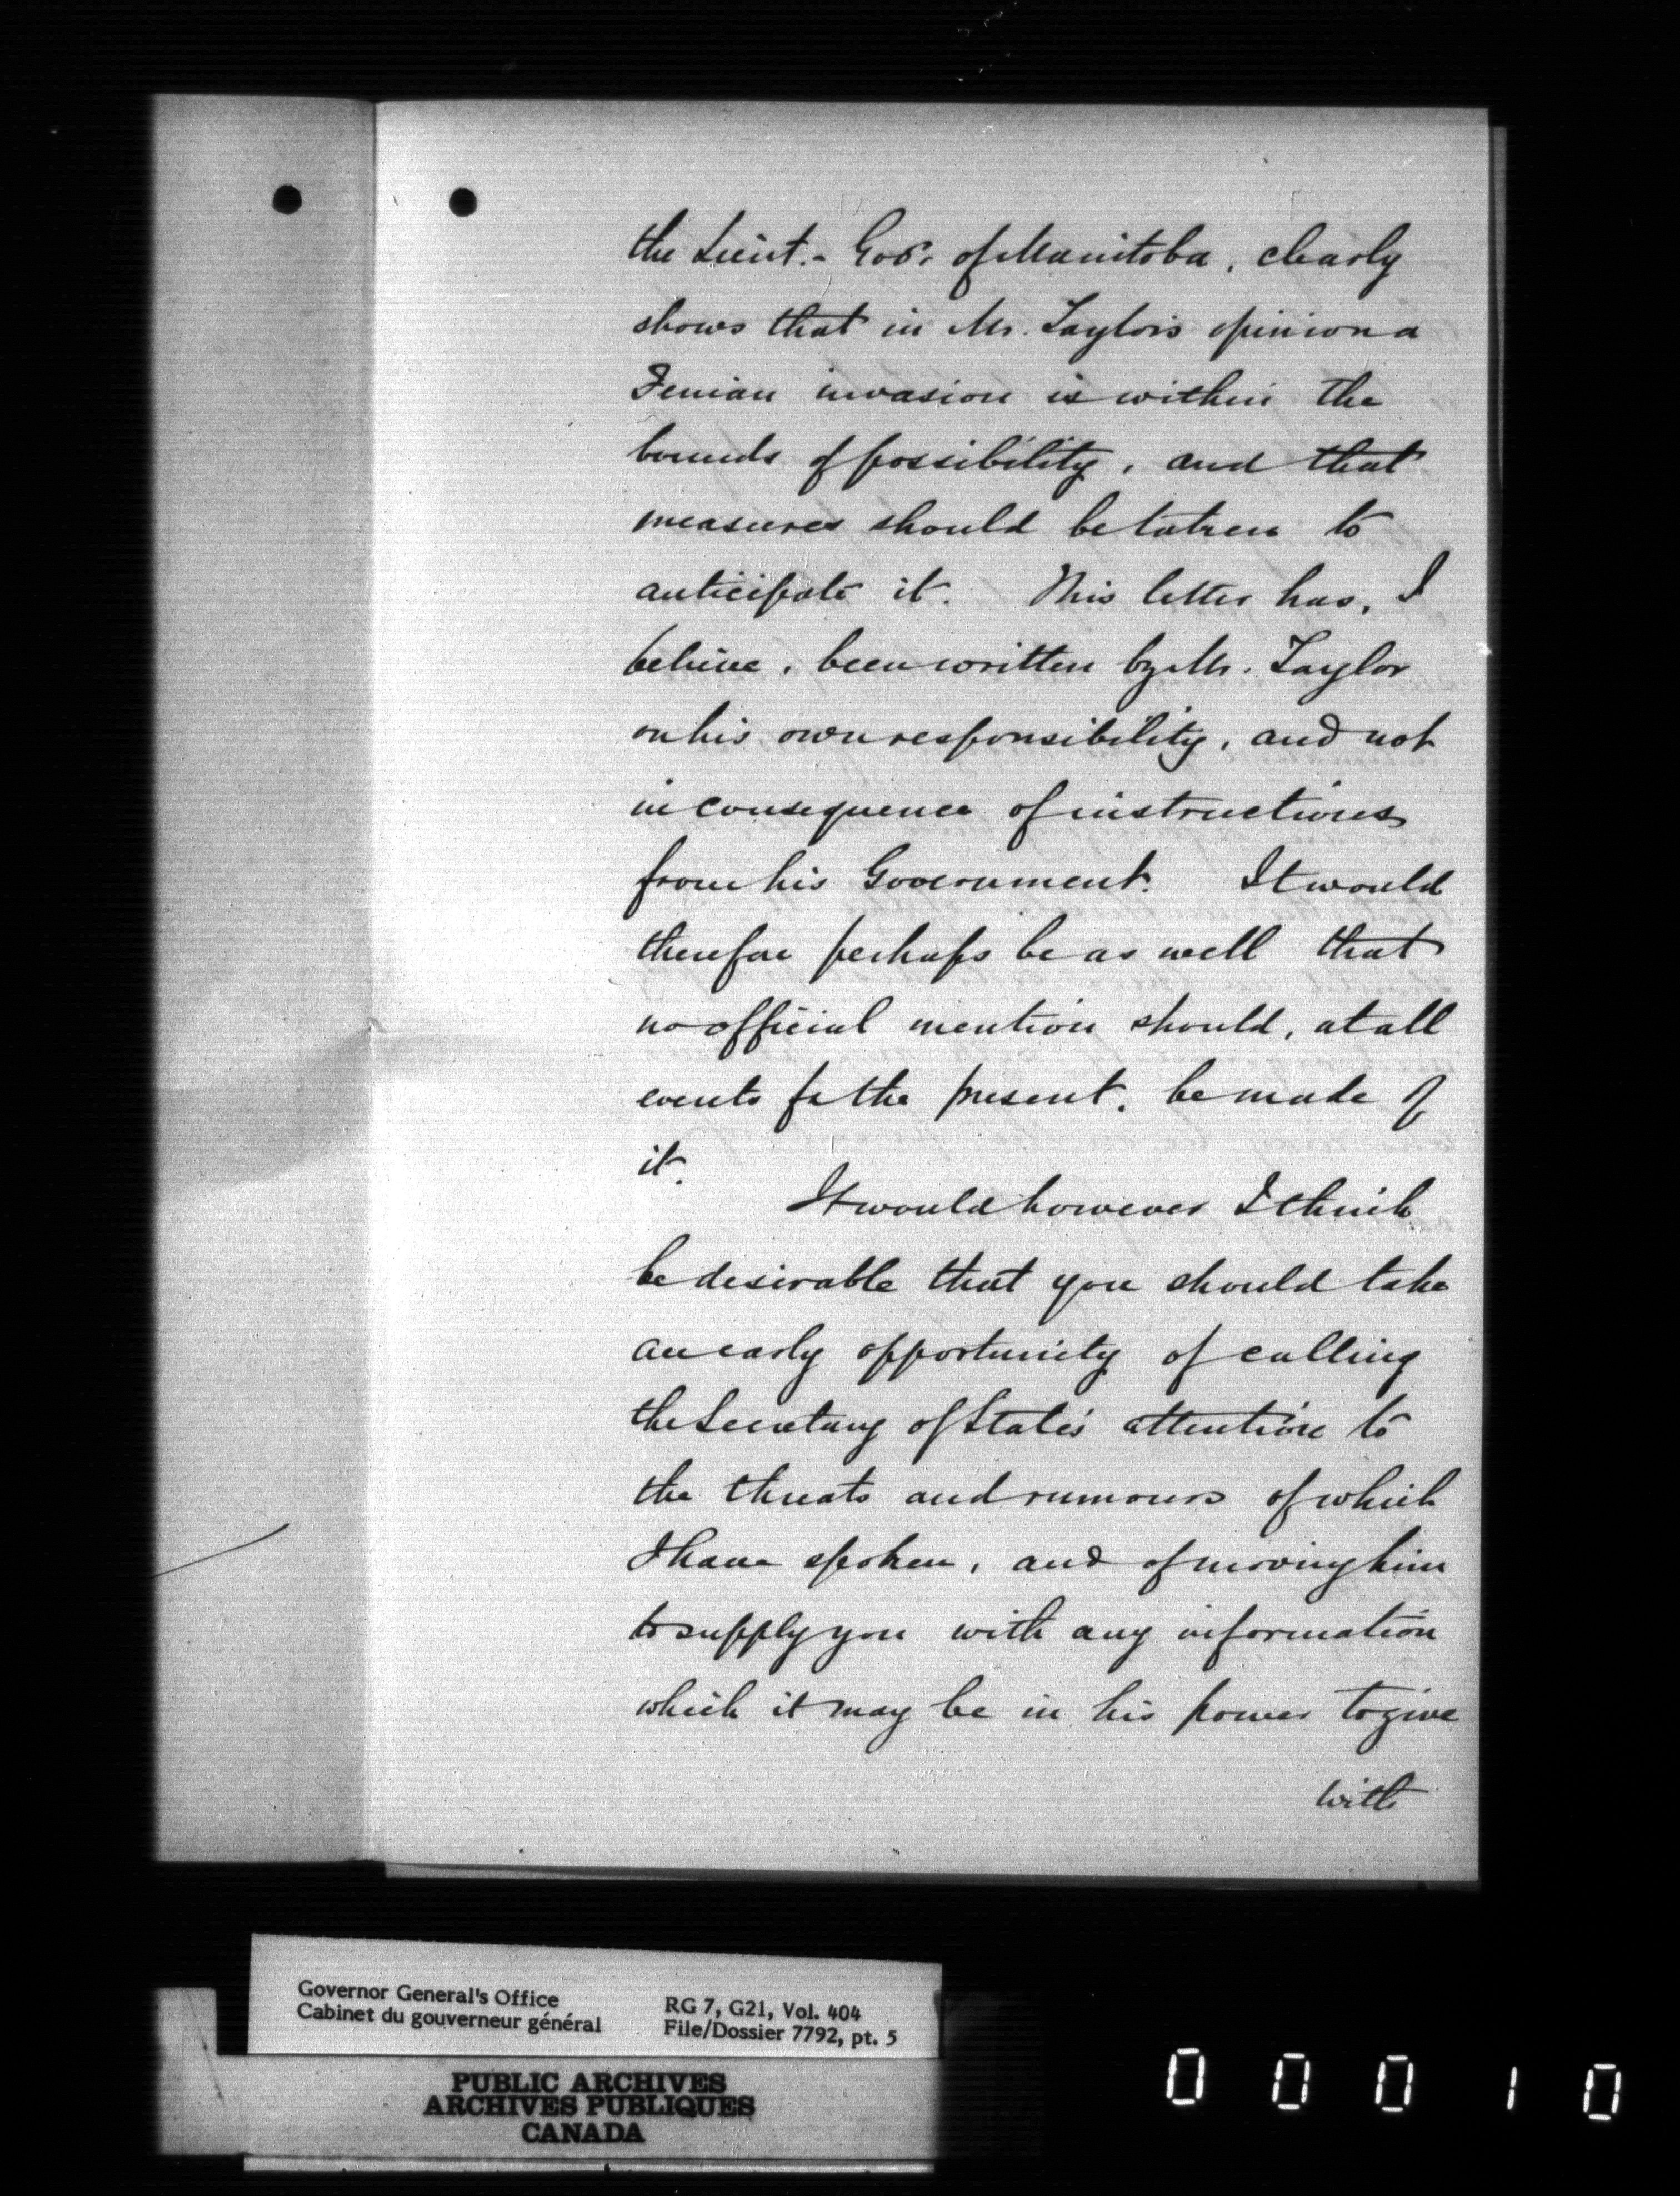 the Lieut.- Govr. of Manitoba, clearly
shows that in Mr. Taylor's opinion a
Fenian invasion is within the
bounds of possibility, and that
measures should be taken to
anticipate it. This letter has, I
believe, been written by Mr. Taylor
on his own responsibility, and not
in consequence of instructions
from his Government. It would
therefore perhaps be as well that
no official mention should, at all
events for the present, be made of
it.
It would however I think
be desirable that you should take
an early opportunity of calling
the Secretary of State's attention to
the threats and rumours of which
I have spoken, and of moving him
to supply you with any information
which it may be in his power to give
with
Governor General's Office
Cabinet du gouverneur général
RG 7, G21, Vol. 404
File/Dossier 7792, pt. 5
PUBLIC ARCHIVES
ARCHIVES PUBLIQUES
CANADA
00010